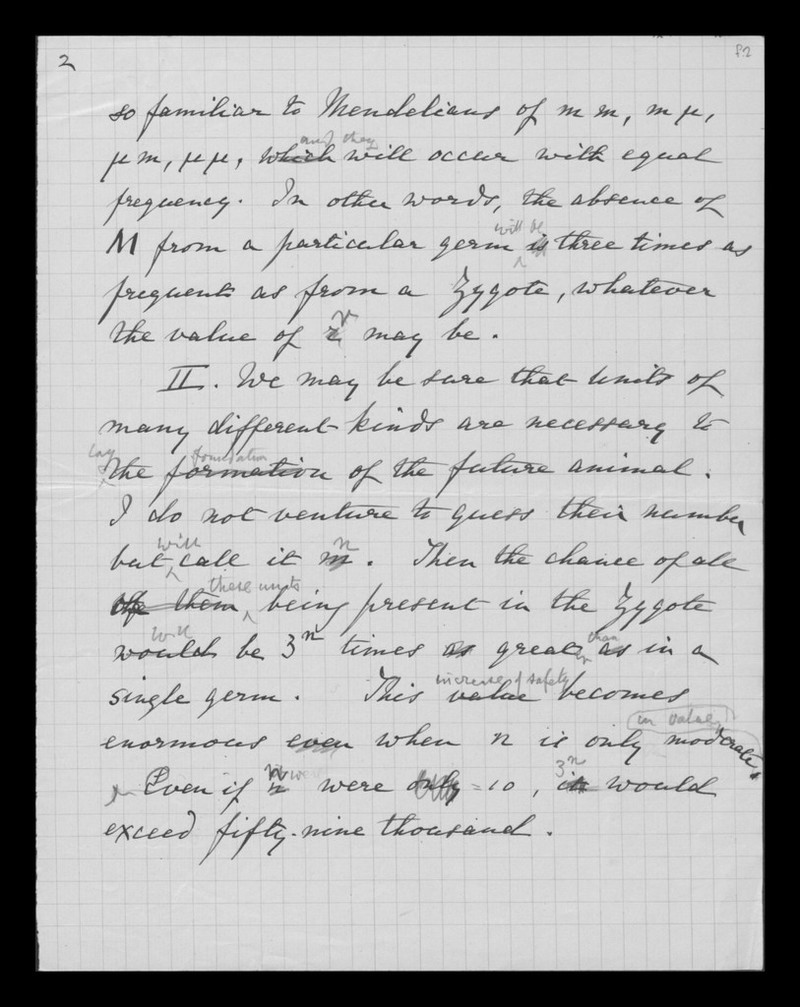 2
f.2
so familiar to Mendelians of m m, m μ,
and they
μ m, μ μ, which will occur with equal
frequency. In other words, the absence of
will be
M from a particular germ is three times as
frequent as from a Zygote, whatever
r
the value of r may be.
II. We may be sure that units of
many different kinds are necessary to
lay foundation
the formation of the future animal.
I do not venture to guess their number
will n
but call it m. Then the chance of all
these units
of them being present in the Zygote
will than
would be 3ⁿ times as greater as in a
increase of safety
single germ. This value becomes
in value
enormous even when n is only moderate.
n 3ⁿ
Even if n were only = 10, it would
exceed fifty-nine thousand.